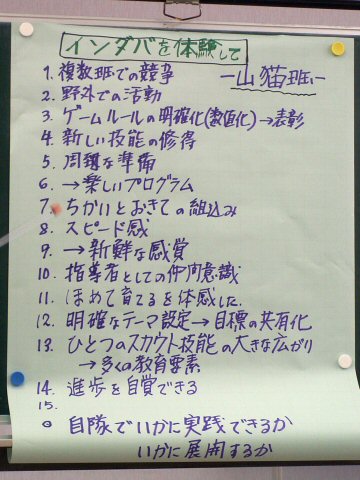 インダバを体験して
－山猫班－
1. 複数班での競争
2. 野外での活動
3. ゲームルールの明確化(数値化)→表彰
4. 新しい技能の修得
5. 周到な準備
6. →楽しいプログラム
7. ちかいとおきての組込み
8. スピード感
9. →新鮮な感覚
10. 指導者としての仲間意識
11. ほめて育てるを体感した
12. 明確なテーマ設定→目標の共有化
13. ひとつのスカウト技能の大きな広がり
→多くの教育要素
14. 進歩を自覚できる
15.
○ 自隊でいかに実践できるか
いかに展開するか